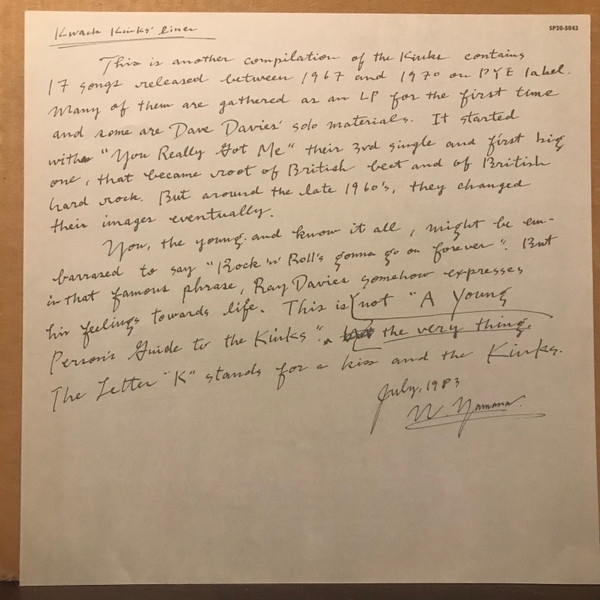 Kwack Kinks' liner
SP20-5043
This is another compilation of the Kinks contains
17 songs released between 1967 and 1970 on PYE label.
Many of them are gathered as an LP for the first time
and some are Dave Davies' solo materials. It started
with "You Really Got Me" their 3rd single and first big
one, that became root of British beet and of British
hard rock. But around the late 1960's, they changed
their images eventually.
You, the young and know it all, might be em-
barrased to say "Rock 'n' Roll's gonna go on forever". But
in that famous phrase, Ray Davies somehow expresses
his feelings towards life. This is not "A Young
Person's Guide to the Kinks", the very thing.
The Letter "K" stands for a kiss and the Kinks.
July, 1983